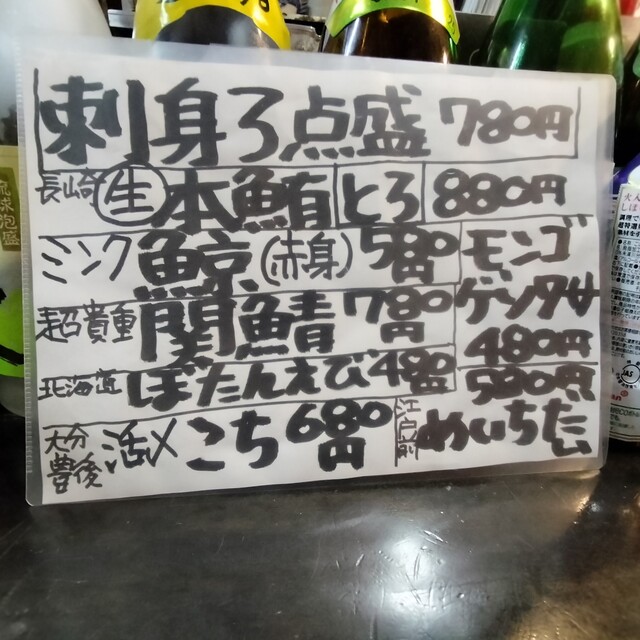 刺身3点盛 780円
長崎 生 本鮪 とろ 880円
ミンク 鯨(赤身) 580円
モンゴ
ゲソタサ
480円
超貴重 関鯖 780円
北海道 ぼたんえび 480円
500円
大分豊後 活〆 こち 680円
江戸前 めいちだい